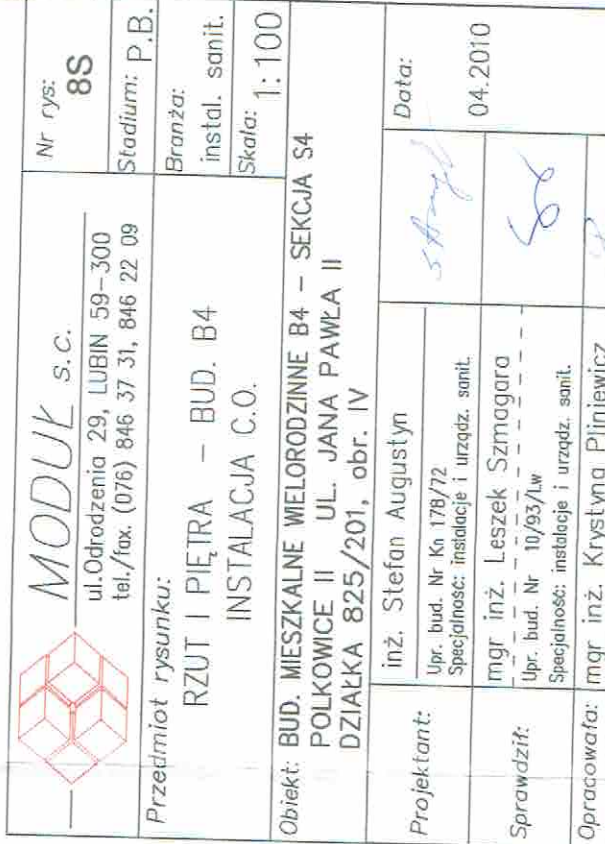 MODUŁ s.c.
ul.Odrodzenia 29, LUBIN 59-300
tel./fax. (076) 846 37 31, 846 22 09
Nr rys:
8S
Stadium: P.B.
Przedmiot rysunku:
RZUT I PIĘTRA - BUD. B4
INSTALACJA C.O.
Branża:
instal. sanit.
Skala: 1:100
Obiekt: BUD. MIESZKALNE WIELORODZINNE B4 - SEKCJA S4
POLKOWICE II UL. JANA PAWŁA II
DZIAŁKA 825/201, obr. IV
Projektant:
inż. Stefan Augustyn
Upr. bud. Nr Kn 178/72
Specjalność: instalacje i urządz. sanit.
Data:
04.2010
Sprawdził:
mgr inż. Leszek Szmagara
Upr. bud. Nr 10/93/Lw
Specjalność: instalacje i urządz. sanit.
Opracowała: mgr inż. Krystyna Pliniewicz